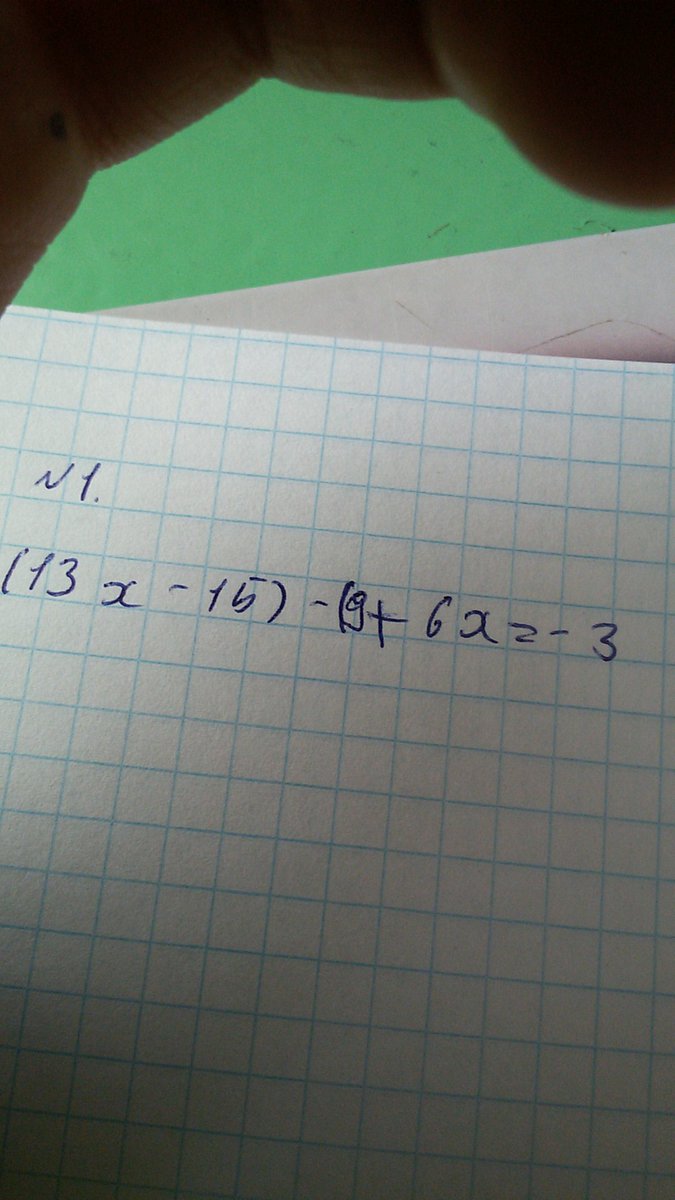 N1.
(13x - 15) - (9 + 6x = - 3